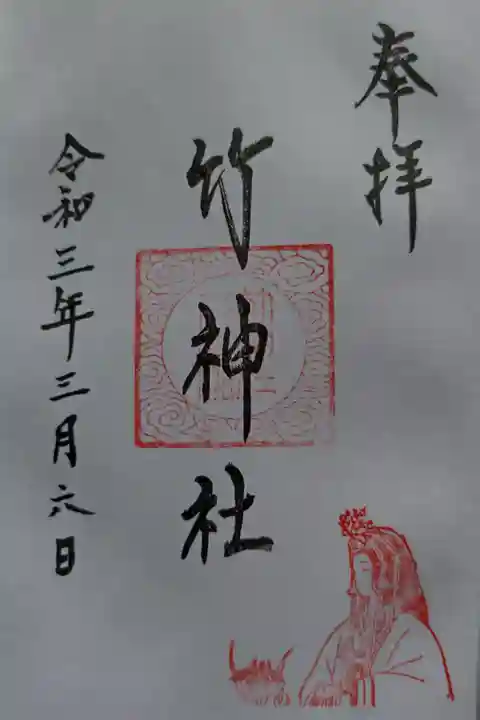 奉拝
竹神社
令和三年三月六日